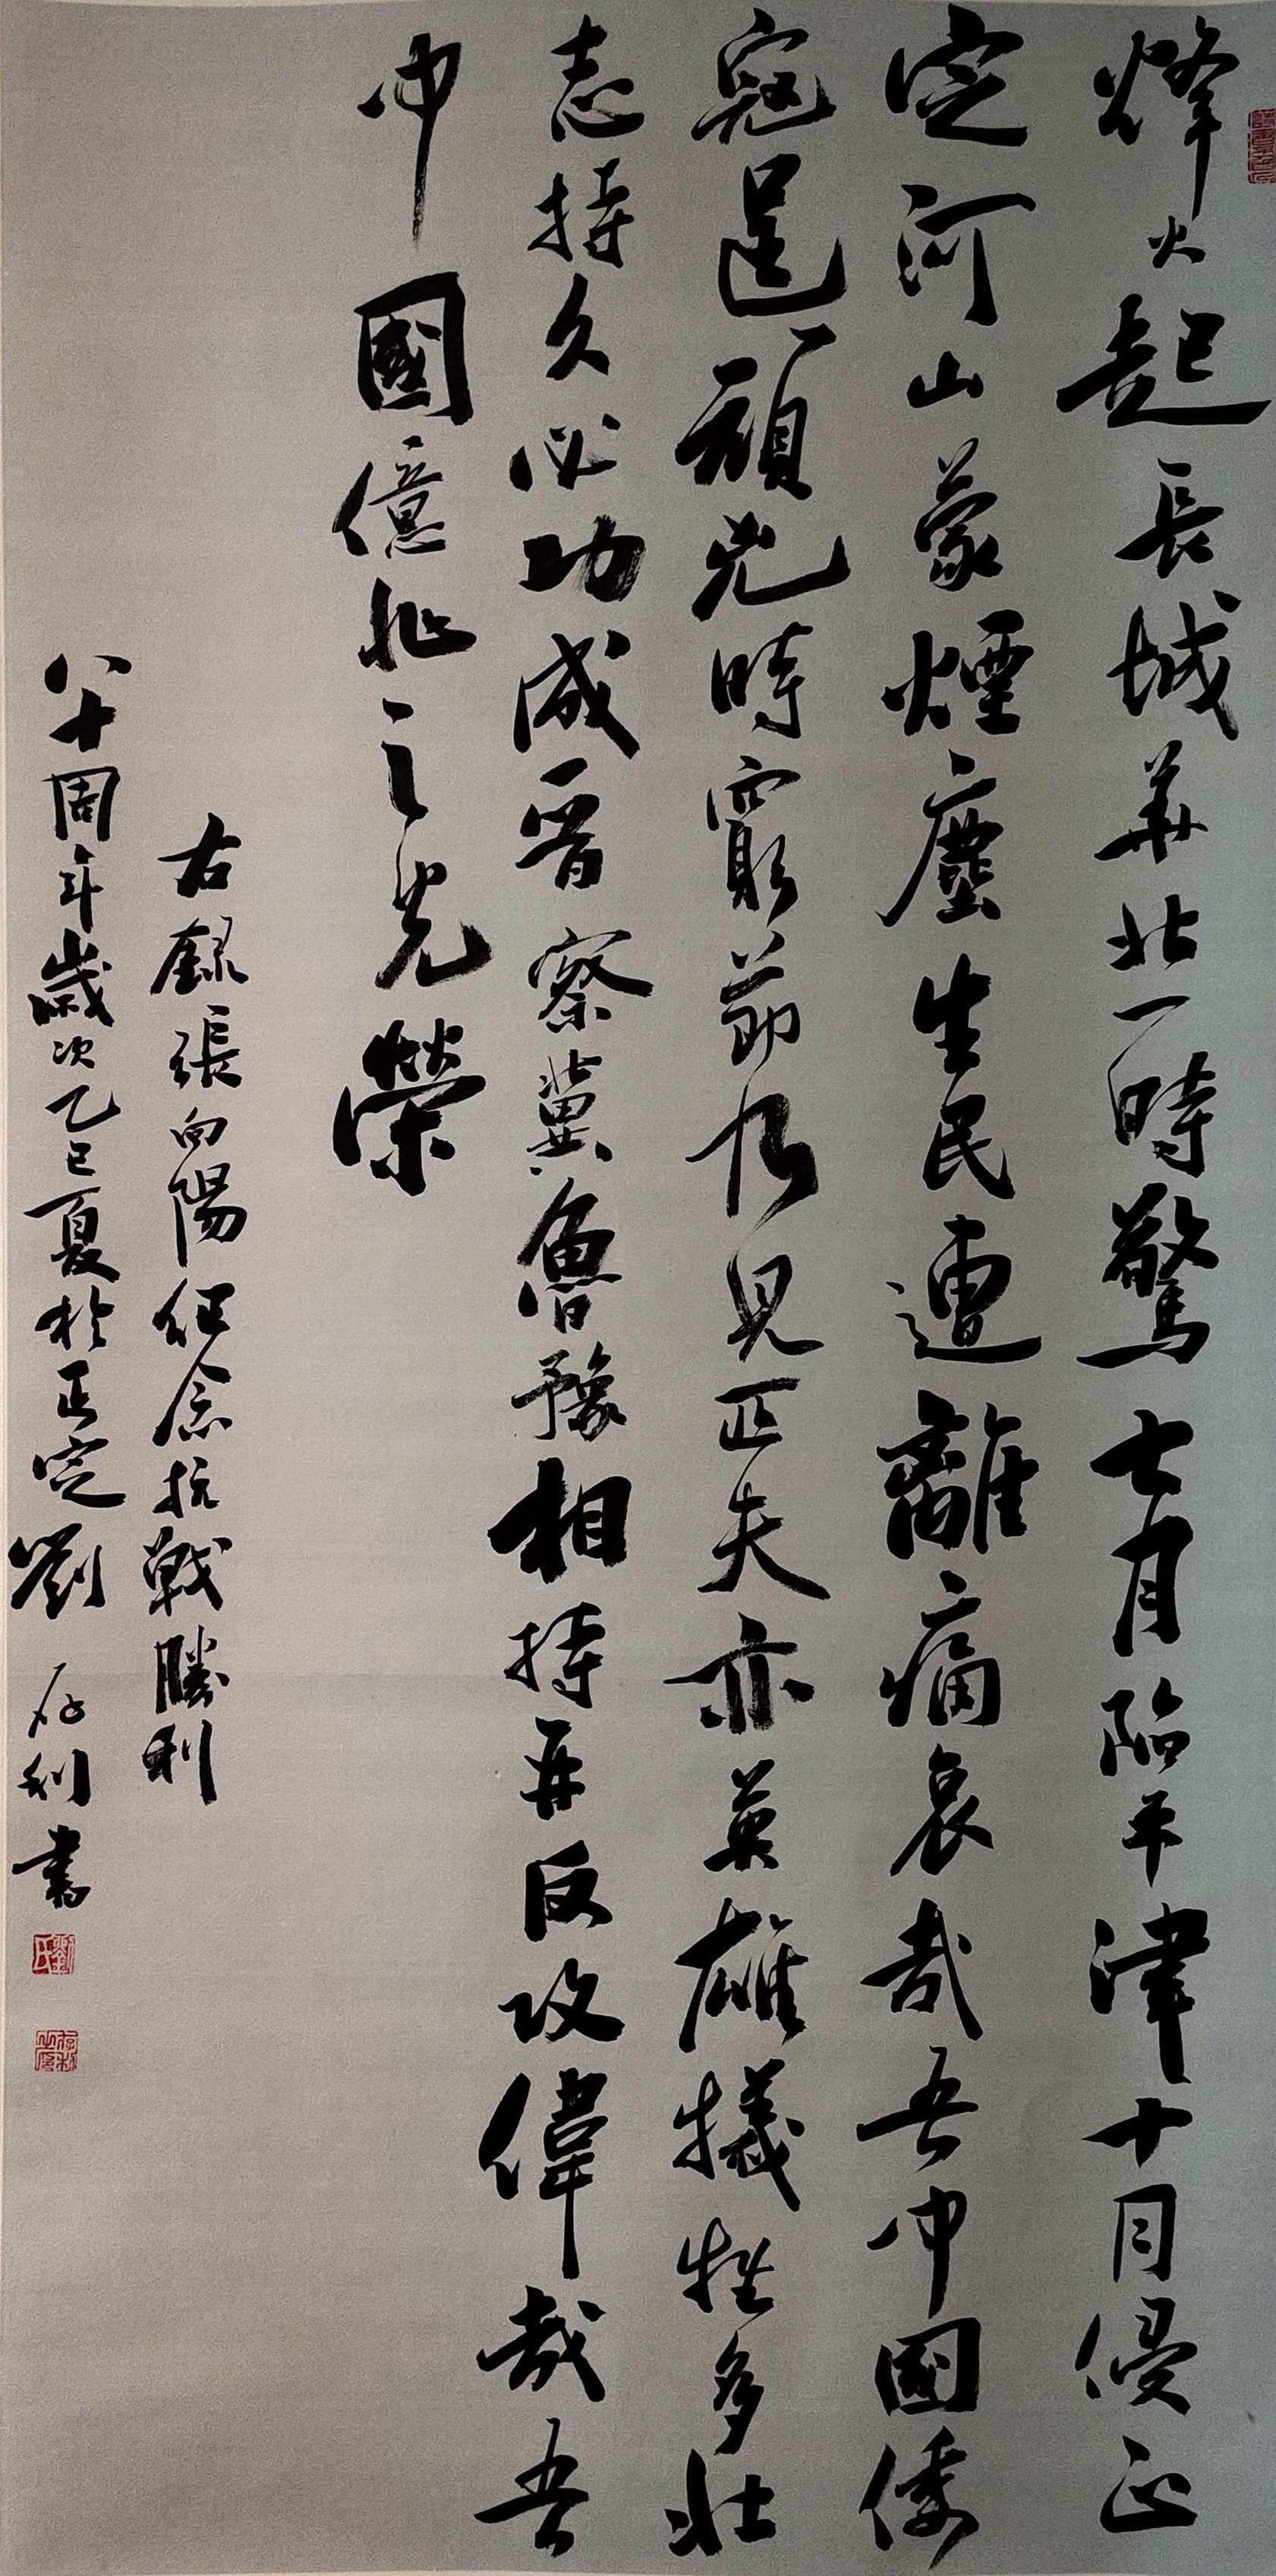 烽火起長城華北一時驚七月陷平津十月侵正
定河山蒙煙塵生民遭離痛哀哉吾中國倭
寇逞頑兇時窮節乃見匹夫亦英雄犧牲多壯
志持久必功成晉察冀魯豫相持再反攻偉哉吾
中國億兆之光榮
右録張向陽紀念抗戰勝利
八十周年歲次乙巳夏於正定劉存利書
劉氏
存利